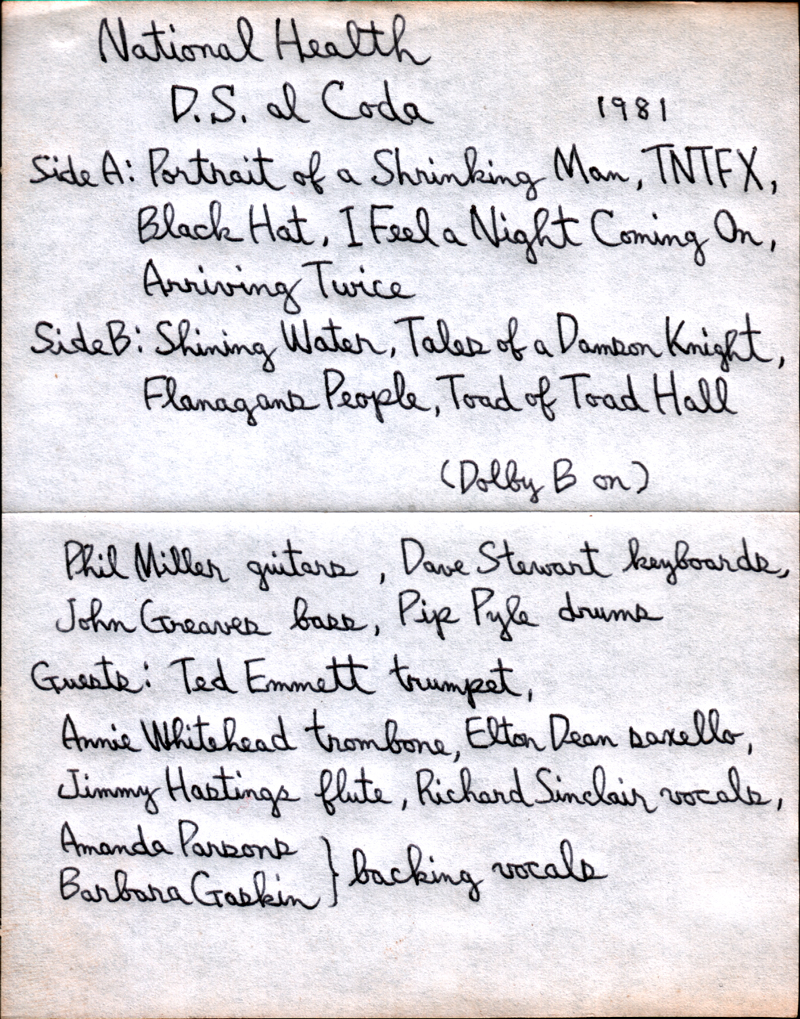 National Health
D.S. al Coda 1981
Side A: Portrait of a Shrinking Man, TNTFX,
Black Hat, I Feel a Night Coming On,
Arriving Twice
Side B: Shining Water, Tales of a Damson Knight,
Flanagans People, Toad of Toad Hall
(Dolby B on)
Phil Miller guitars, Dave Stewart keyboards,
John Greaves bass, Pip Pyle drums
Guests: Ted Emmett trumpet,
Annie Whitehead trombone, Elton Dean saxello,
Jimmy Hastings flute, Richard Sinclair vocals,
Amanda Parsons
Barbara Gaskin } backing vocals